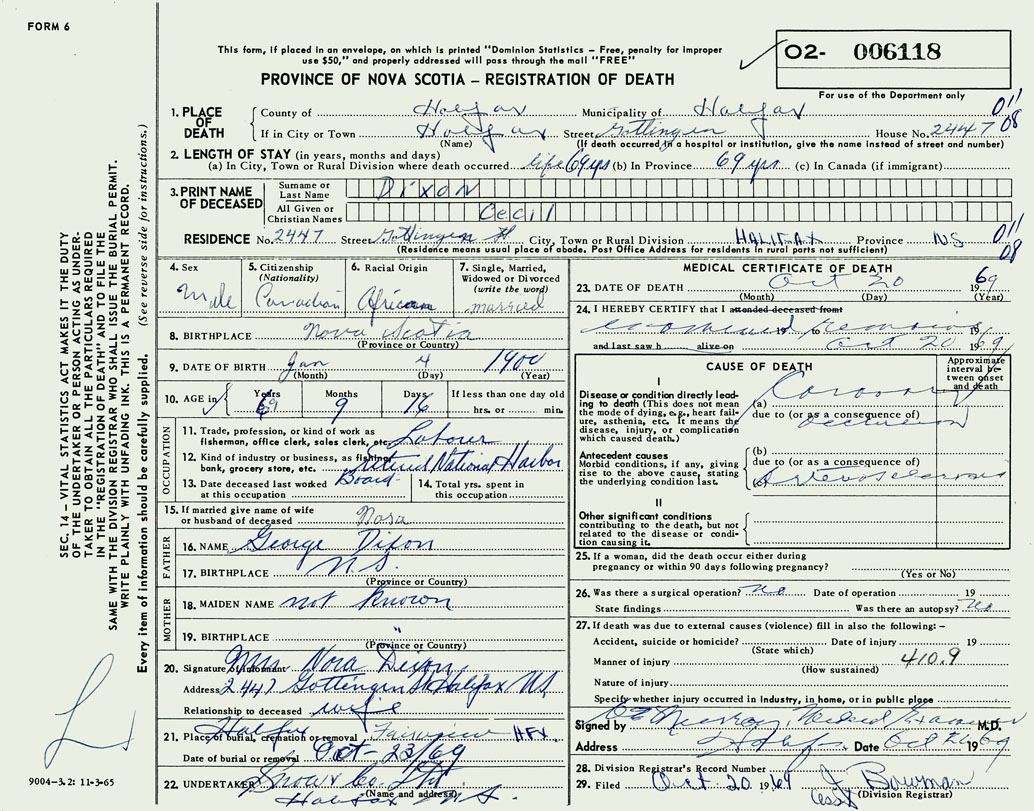 FORM 6
This form, if placed in an envelope, on which is printed "Dominion Statistics – Free, penalty for improper
use $50," and properly addressed will pass through the mail "FREE"
PROVINCE OF NOVA SCOTIA – REGISTRATION OF DEATH
O2- 006118
For use of the Department only
1. PLACE OF DEATH County of Halifax Municipality of Halifax 011
If in City or Town Halifax Street Gottingen House No. 2447 08
(Name) (If death occurred in a hospital or institution, give the name instead of street and number)
2. LENGTH OF STAY (in years, months and days)
(a) In City, Town or Rural Division where death occurred life 69 yrs (b) In Province 69 yrs (c) In Canada (if immigrant)
3. PRINT NAME OF DECEASED Surname or Last Name Dixon
All Given or Christian Names Cecil
RESIDENCE No. 2447 Street Gottingen St City, Town or Rural Division HALIFAX Province NS 011
(Residence means usual place of abode. Post Office Address for residents in rural parts not sufficient) 08
4. Sex Male
5. Citizenship (Nationality) Canadian
6. Racial Origin African
7. Single, Married, Widowed or Divorced (write the word) married
8. BIRTHPLACE Nova Scotia
(Province or Country)
9. DATE OF BIRTH Jan 4 1900
(Month) (Day) (Year)
10. AGE in Years 69 Months 9 Days 16 If less than one day old
hrs. or min.
OCCUPATION
11. Trade, profession, or kind of work as
fisherman, office clerk, sales clerk, etc. Labourer
12. Kind of industry or business, as fishing,
bank, grocery store, etc. National Harbor
Board
13. Date deceased last worked
at this occupation
14. Total yrs. spent in
this occupation
15. If married give name of wife
or husband of deceased Nora
FATHER
16. NAME George Dixon
17. BIRTHPLACE N.S.
(Province or Country)
MOTHER
18. MAIDEN NAME not known
19. BIRTHPLACE "
(Province or Country)
20. Signature of informant Mrs. Nora Dixon
Address 2447 Gottingen St Halifax N.S.
Relationship to deceased wife
21. Place of burial, cremation or removal Halifax Fairview HFX
Date of burial or removal Oct-23/69
22. UNDERTAKER Snow & Co. Ltd
(Name and address)
Halifax N.S.
MEDICAL CERTIFICATE OF DEATH
23. DATE OF DEATH Oct 20 1969
(Month) (Day) (Year)
24. I HEREBY CERTIFY that I attended deceased from
examined remains 19 to
and last saw h alive on Oct 20 1969
CAUSE OF DEATH
Approximate interval between onset and death
I
Disease or condition directly leading to death (This does not mean the mode of dying, e.g., heart failure, asthenia, etc. It means the disease, injury, or complication which caused death.)
(a) Coronary
due to (or as a consequence of)
occlusion
Antecedent causes
Morbid conditions, if any, giving rise to the above cause, stating the underlying condition last.
(b)
due to (or as a consequence of)
(c) Arteriosclerosis
II
Other significant conditions
contributing to the death, but not related to the disease or condition causing it.
25. If a woman, did the death occur either during
pregnancy or within 90 days following pregnancy?
(Yes or No)
26. Was there a surgical operation? no Date of operation 19
State findings Was there an autopsy? no
27. If death was due to external causes (violence) fill in also the following: –
Accident, suicide or homicide? Date of injury 19
(State which)
Manner of injury 410.9
(How sustained)
Nature of injury
Specify whether injury occurred in Industry, in home, or in public place
Signed by Murray Medical Examiner M.D.
Address Halifax Date Oct 1969
28. Division Registrar's Record Number
29. Filed Oct 20 1969 J Bowman
(Division Registrar)
SEC. 14 – VITAL STATISTICS ACT MAKES IT THE DUTY
OF THE UNDERTAKER OR PERSON ACTING AS UNDER-
TAKER TO OBTAIN ALL THE PARTICULARS REQUIRED
IN THE "REGISTRATION OF DEATH" AND TO FILE THE
SAME WITH THE DIVISION REGISTRAR WHO SHALL ISSUE THE BURIAL PERMIT.
WRITE PLAINLY WITH UNFADING INK. THIS IS A PERMANENT RECORD.
Every item of information should be carefully supplied. (See reverse side for instructions.)
9004-3.2: 11-3-65